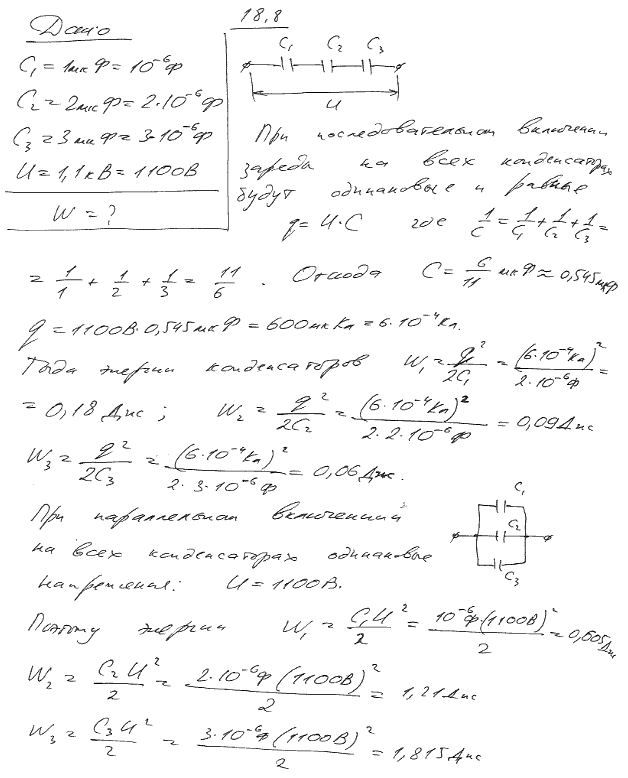 18,8
Дано
C₁ = 1мкФ = 10⁻⁶Ф
C₂ = 2мкФ = 2·10⁻⁶Ф
C₃ = 3мкФ = 3·10⁻⁶Ф
U = 1,1кВ = 1100В
W = ?
C₁ C₂ C₃
U
При последовательном включении
заряды на всех конденсаторах
будут одинаковые и равные
q = U·C где 1/C = 1/C₁ + 1/C₂ + 1/C₃ =
= 1/1 + 1/2 + 1/3 = 11/6 . Отсюда C = 6/11 мкФ ≈ 0,545мкФ
q = 1100В·0,545мкФ = 600мкКл = 6·10⁻⁴Кл.
Тогда энергии конденсаторов W₁ = q²/2C₁ = (6·10⁻⁴Кл)²/2·10⁻⁶Ф =
= 0,18Дж ; W₂ = q²/2C₂ = (6·10⁻⁴Кл)²/2·2·10⁻⁶Ф = 0,09Дж
W₃ = q²/2C₃ = (6·10⁻⁴Кл)²/2·3·10⁻⁶Ф = 0,06Дж.
При параллельном включении
на всех конденсаторах одинаковые
напряжения: U = 1100В.
C₁
C₂
C₃
Поэтому энергии W₁ = C₁U²/2 = 10⁻⁶Ф·(1100В)²/2 = 0,605Дж
W₂ = C₂U²/2 = 2·10⁻⁶Ф(1100В)²/2 = 1,21Дж
W₃ = C₃U²/2 = 3·10⁻⁶Ф(1100В)²/2 = 1,815Дж